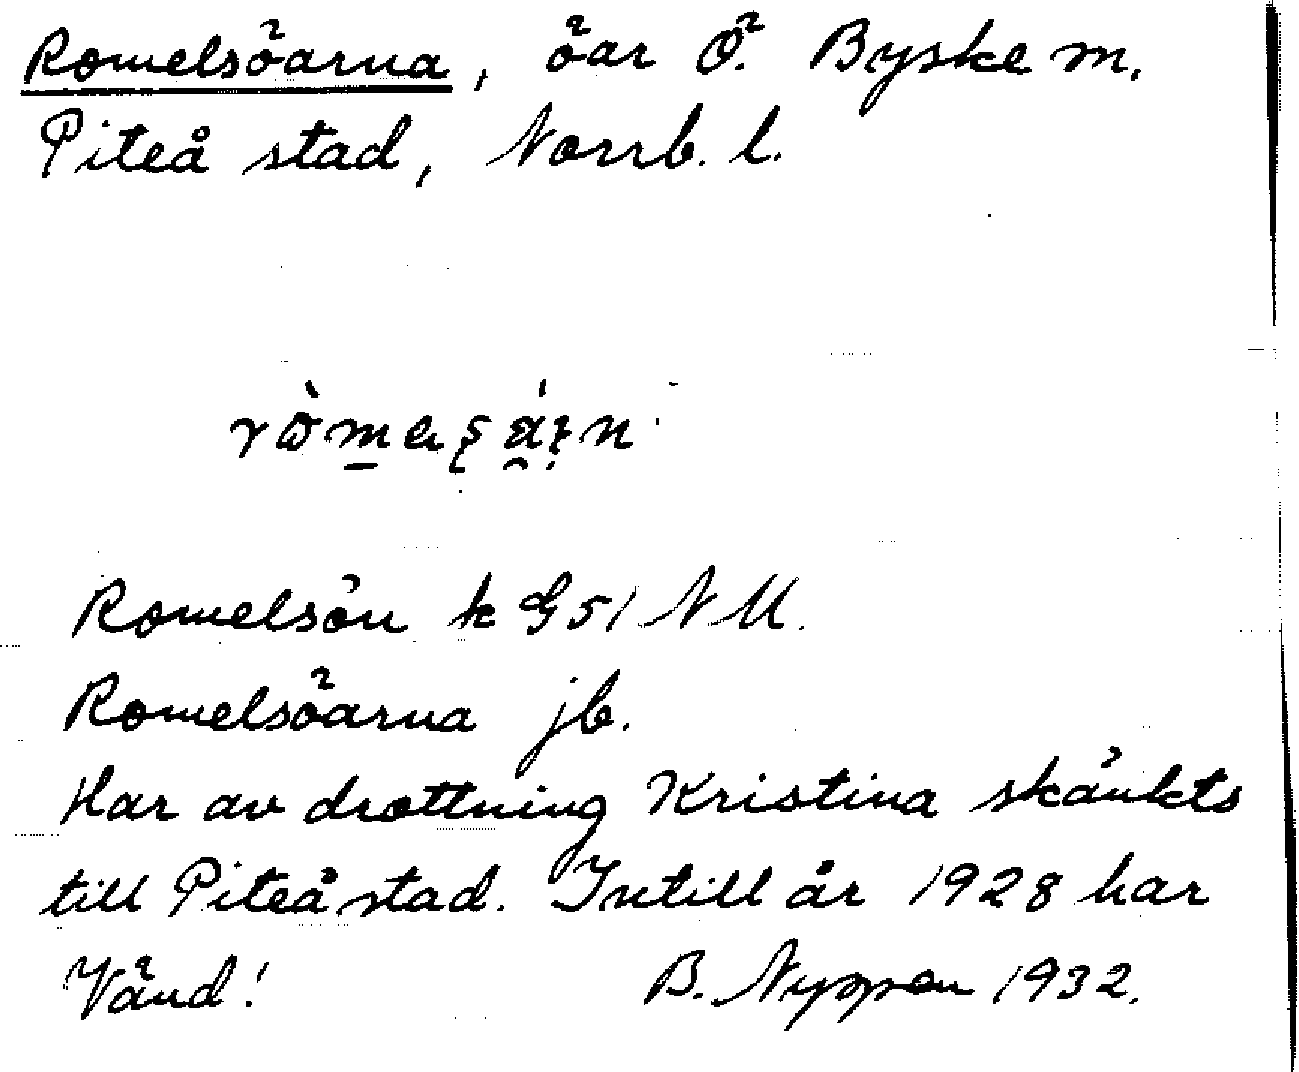 Romelsöarna, öar Ö. Byske m.
Piteå stad, Norrb. l.
Romelsön k G51 NM.
Romelsöarna jb.
Har av drottning Kristina skänkts
till Piteå stad. Intill år 1928 har
Vänd! B. Nyppen 1932.